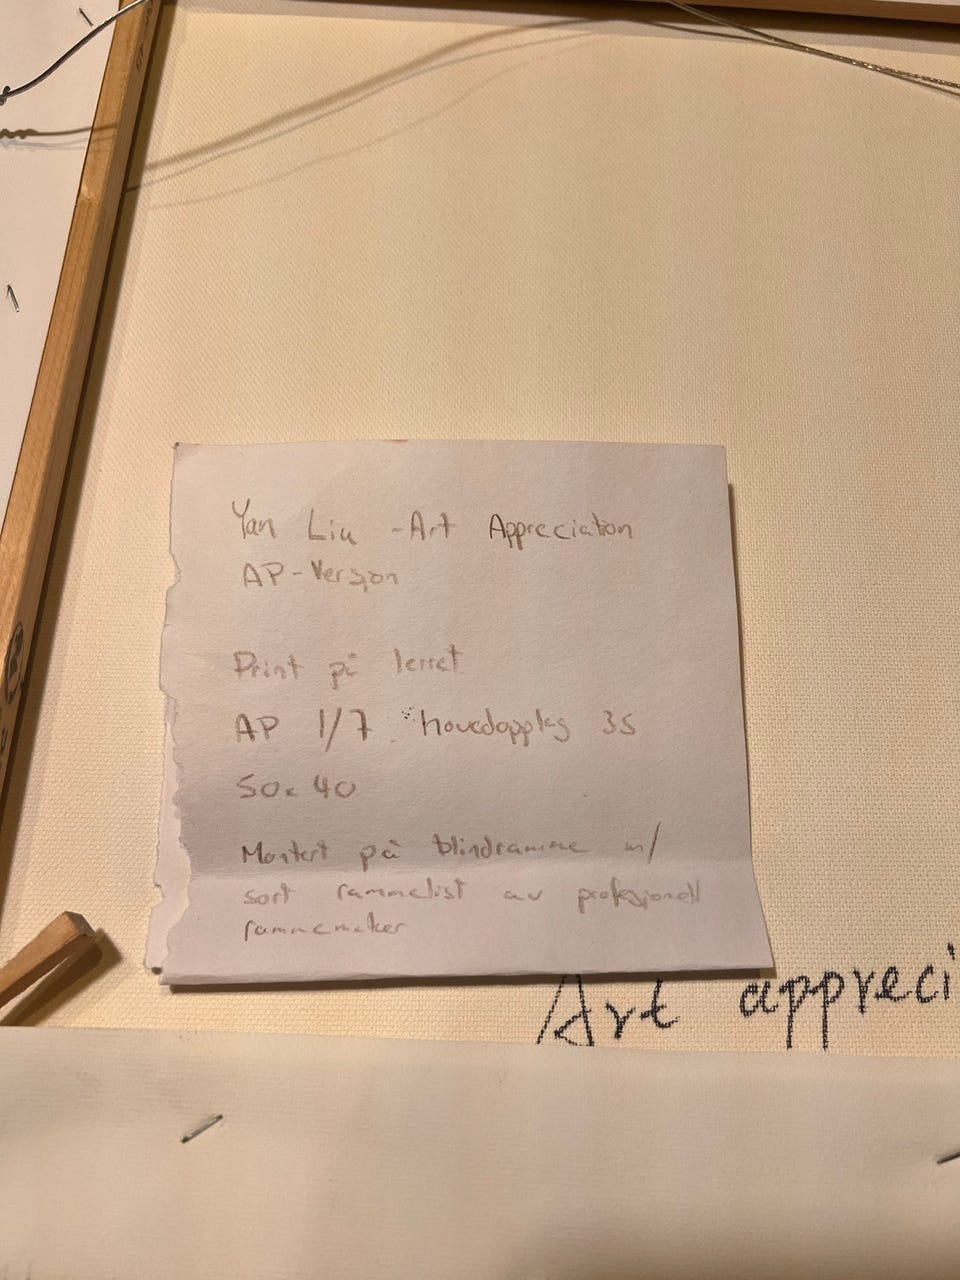 Yan Liu - Art Appreciation
AP-Versjon
Print på lerret
AP 1/7 hovedopplag 35
50x40
Montert på blindramme m/
sort rammelist av profesjonell
rammemaker
Art appreci